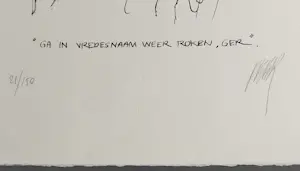 "GA IN VREDESNAAM WEER ROKEN, GER".